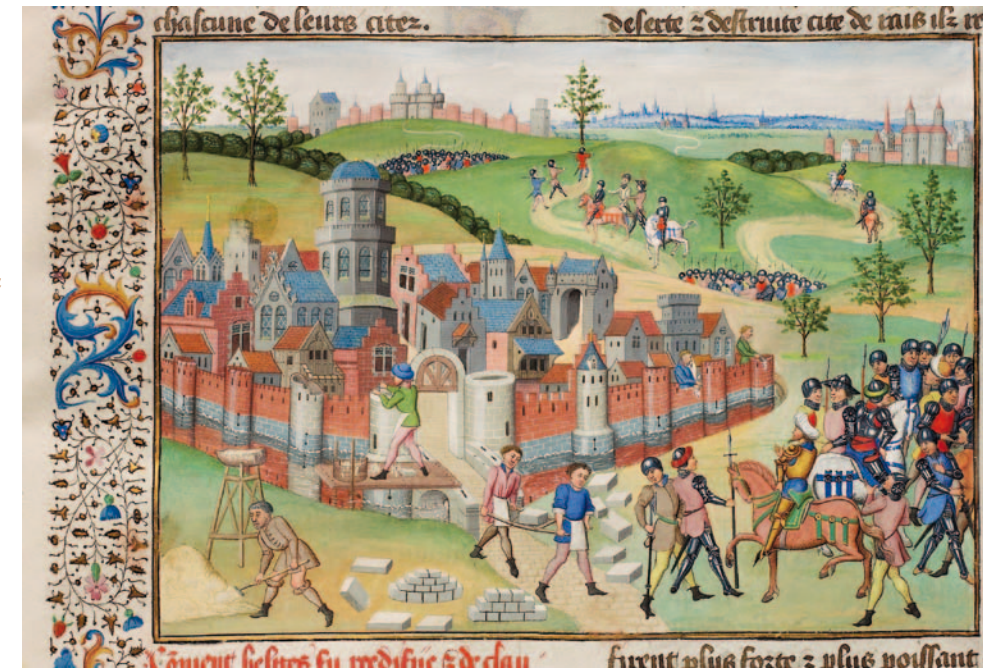 chascune de leurs citez.
deserte ⁊ destruite cite de
Cõment belges fu reedifiie ⁊ de clau
furent plus forte ⁊ plus puissant